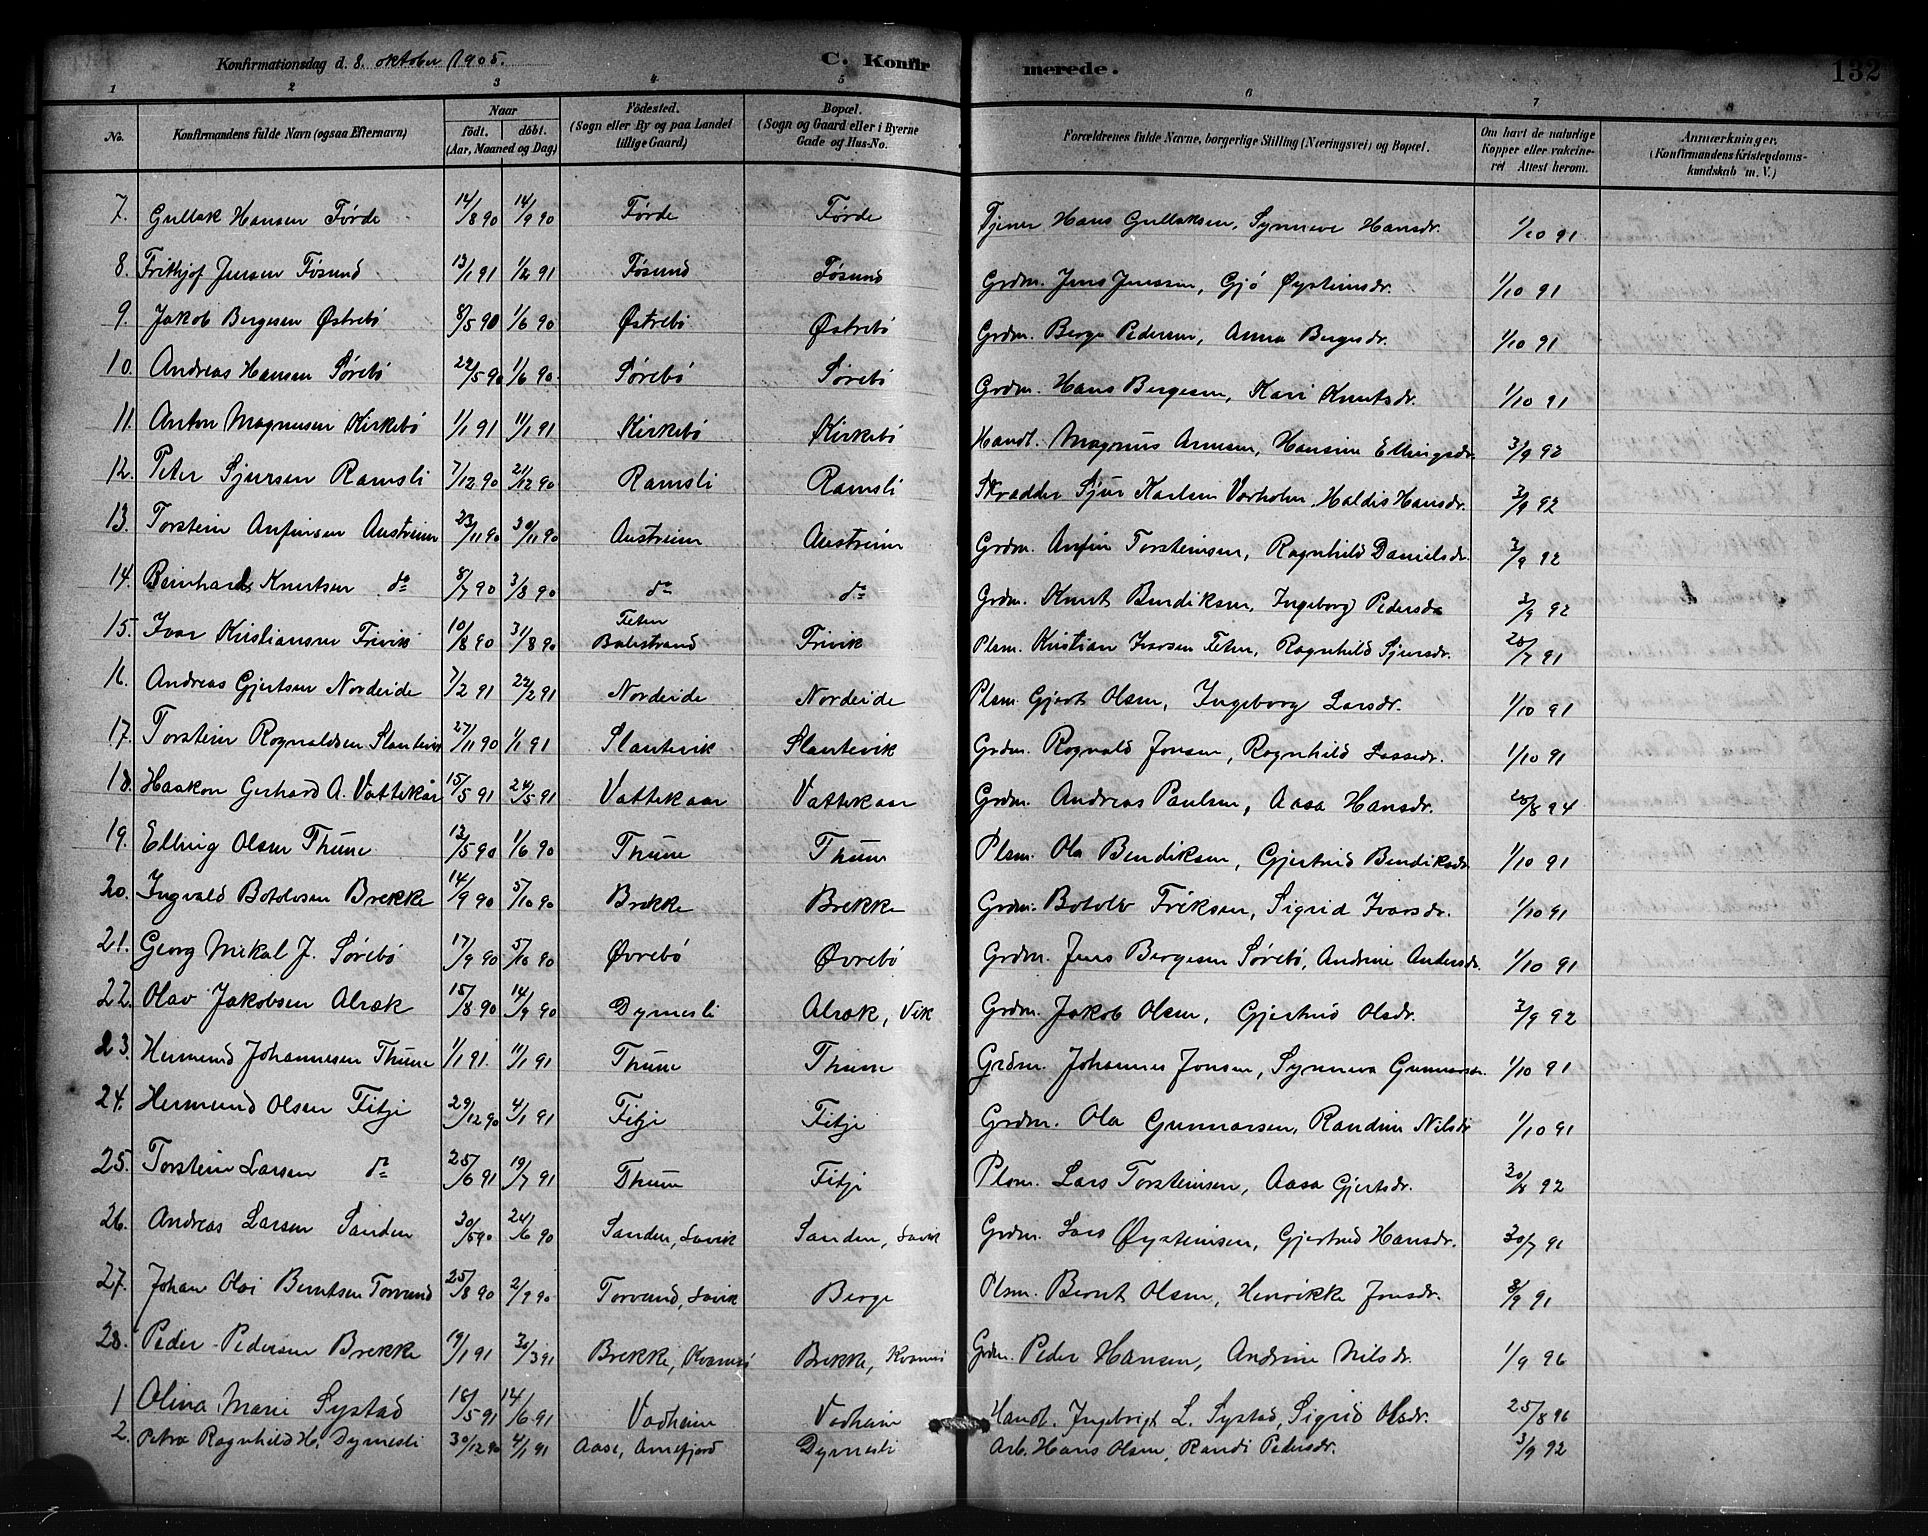 Konfirmationsdag d. 8. oktober 1905. C. Konfirmerede. 132
1 2 3 4 5 6 7 8
No. Konfirmandens fulde Navn (ogsaa Efternavn) Naar født. døbt. (Aar, Maaned og Dag) Fødested. (Sogn eller By og paa Landet tillige Gaard) Bopæl. (Sogn og Gaard eller i Byerne Gade og Hus-No. Forældrenes fulde Navne, borgerlige Stilling (Næringsvei) og Bopæl. Om havt de naturlige Kopper eller vakcineret Attest herom. Anmærkninger. (Konfirmandens Kristendomskundskab m. V.)
7. Gullak Hansen Førde 14/8 90 14/9 90 Førde Førde Tjener Hans Gullaksen, Synneve Hansdr. 1/10 91
8. Frithjof Jensen Føsund 13/1 91 1/2 91 Føsund Føsund Grdm. Jens Jenssen, Gjø Øysteinsdr. 1/10 91
9. Jakob Bergesen Østrebø 8/5 90 1/6 90 Østrebø Østrebø Grdm. Berge Pedersen, Anna Bergesdr. 1/10 91
10. Andreas Hansen Sørebø 22/5 90 1/6 90. Sørebø Sørebø Grdm. Hans Bergesen, Kari Knutsdr. 1/10 91
11. Anton Magnusen Kirkebø 1/1 91 11/1 91 Kirkebø Kirkebø Handl. Magnus Arnesen, Hansine Ellingsdr. 3/9 92
12. Peter Sjursen Ramsli 7/12 90 21/12 90 Ramsli Ramsli Skrædder Sjur Karlsen Vorholm, Haldis Hansdr. 3/9 92
13. Torstein Anfinsen Austreim 23/11 90 30/11 90 Austreim Austreim Grdm. Anfin Torsteinsen, Ragnhild Danielsdr. 3/9 92
14. Beinhard Knutsen do 8/7 90 3/8 90 do do Grdm. Knut Bendiksen, Ingeborg Pedersdr 3/9 92
15. Ivar Kristiansen Frivik 10/8 90 31/8 90 Feten Balestrand Frivik Plsm. Kristian Ivarsen Feten, Ragnhild Sjursdr. 28/7 91
16. Andreas Gjertsen Nordeide 7/2 91 22/2 91 Nordeide Nordeide Plsm. Gjert Olsen, Ingeborg Larsdr. 1/10 91
17. Torstein Rognaldsen Slantevik 27/11 90 1/1 91 Slantevik Slantevik Grdm. Rognald Jonsen, Ragnhild Lassedr. 1/10 91
18. Haakon Gerhard A. Vattekår 15/5 91 24/5 91 Vattekaar Vattekaar Grdm. Andreas Paulsen, Aasa Hansdr. 28/8 94
19. Elling Olsen Thune 13/5 90 1/6 90 Thune Thune Plsm. Ola Bendiksen, Gjertrud Bendiksdr 1/10 91
20. Ingvald Botolvsen Brekke 14/9 90 5/10 90 Brekke Brekke Grdm. Botolv Eriksen, Sigrid Ivarsdr. 1/10 91
21. Georg Mikal J. Sørebø 17/9 90 5/10 90 Øvrebø Øvrebø Grdm. Jens Bergesen Sørebø, Andrine Andersdr. 1/10 91
22. Olav Jakobsen Alræk 15/8 90 14/9 90 Dymesli Alræk, Vik Grdm. Jakob Olsen, Gjertrud Olsdr. 3/9 92
23. Hermund Johannesen Thune 1/1 91. 11/1 91 Thune Thune Grdm. Johannes Jonsen, Synneva Gunnarsdr. 1/10 91
24. Hermund Olsen Fitje 29/12 90 4/1 91 Fitje Fitje Grdm. Ola Gunnarsen, Randine Nilsdr 1/10 91
25. Torstein Larsen do 25/6 91 19/7 91 Thune Fitje Plsm. Lars Torsteinsen, Aasa Gjertsdr. 30/8 92
26. Andreas Larsen Sanden 30/5 90 24/6 90 Sanden, Lavik Sanden, Lavik Grdm. Lars Øysteinsen, Gjertrud Hansdr. 30/7 91
27. Johan Olai Berntsen Torvund 25/8 90 2/9 90 Torvund, Lavik Berge Plsm. Bernt Olsen, Henrikke Jonsdr. 8/9 91
28. Peder Pedersen Brekke 19/1 91 30/3 91 Brekke, Kvamsø Brekke, Kvamsø Grdm. Peder Hansen, Andrine Nilsdr. 1/9 96
1 Olina Marie Systad 18/5 91 14/6 91 Vadheim Vadheim Handl. Ingebrigt L. Systad, Sigrid Olsdr. 25/8 96
2. Petra Ragnhild H. Dymesli 30/12 90 4/1 91 Aase, Arnefjord Dymesli Arb. Hans Olsen, Randi Pedersdr. 3/9 92